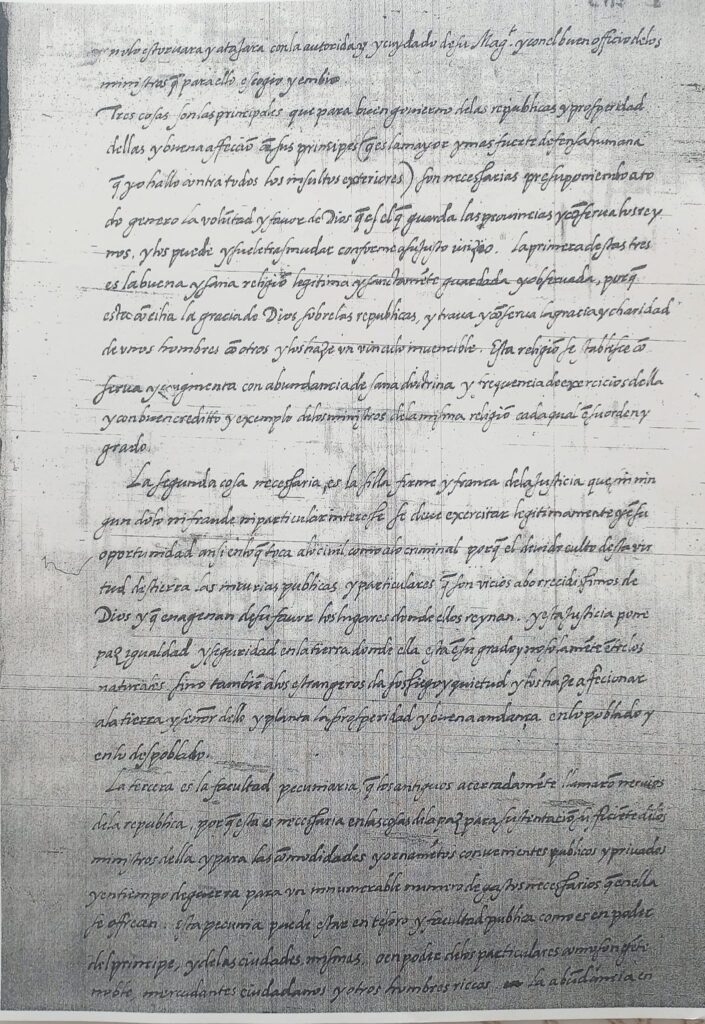 y no lo estoruara y atajara con la autoridad y cuydado de su Mag.t y con el buen officio de los
ministros q̃ para ello escogio y embio.
Tres cosas son las principales que para buen gouierno de las republicas y prosperidad
dellas y buena affeciõ cõ sus principes (q̃ es la mayor y mas fuerte defensa humana
q̃ yo hallo contra todos los insultos exteriores) son necessarias presuponiendo a to
do genero la volũtad y fauor de Dios q̃ es el q̃ guarda las prouincias y cõserua los rey
nos, y los puede y suele trasmudar conforme a su justo iuizio. La primera destas tres
es la buena y sana religiõ legitima y sanctamẽte guardada y obseruada, porq̃
esta cõcilia la gracia de Dios sobre las republicas, y traua y cõserua la gracia y charidad
de vnos hombres cõ otros y los haze vn vinculo inuencible. Esta religiõ se establesce cõ
serua y augmenta con abundancia de sana doctrina y frequencia de exercicios della
y con buen creditto y exemplo de los ministros de la misma religiõ cada qual ẽ su orden y
grado.
La segunda cosa necessaria, es la silla firme y franca de la justicia que sin nin
gun dolo ni fraude ni particular interesse se deue exercitar legitimamente y ẽ su
oportunidad ansi en lo q̃ toca a lo ciuil como a lo criminal porq̃ el diuido culto desta vir
tud destierra las iniurias publicas y particulares q̃ son vicios aborrecidissimos de
Dios y q̃ enagenan de su fauor los lugares donde ellos reynan. y esta justicia pone
paz igualdad y seguridad en la tierra donde ella esta ẽ su grado y no solamẽte ẽtre los
naturales sino tambiẽ a los estrangeros da sossiego y quietud y los haze affecionar
a la tierra y señor dello y planta la prosperidad y buena andança en lo poblado y
en lo despoblado.
La tercera es la facultad pecuniaria, q̃ los antiguos acertadamẽte llamarõ neruios
de la republica, porq̃ esta es necessaria en las cosas de la paz para sustentaciõ suficiẽte de los
ministros della y para las cõmodidades y ornamẽtos conuenientes publicos y priuados
y en tiempo de guerra para vn innumerable numero de gastos necessarios q̃ en ella
se offrecen. Esta pecunia puede estar en tesoro y facultad publica como es en poder
del principe, y de las ciudades mismas, o en poder de los particulares como son gẽte
noble, mercadantes ciudadanos y otros hombres riccos la abũdancia en